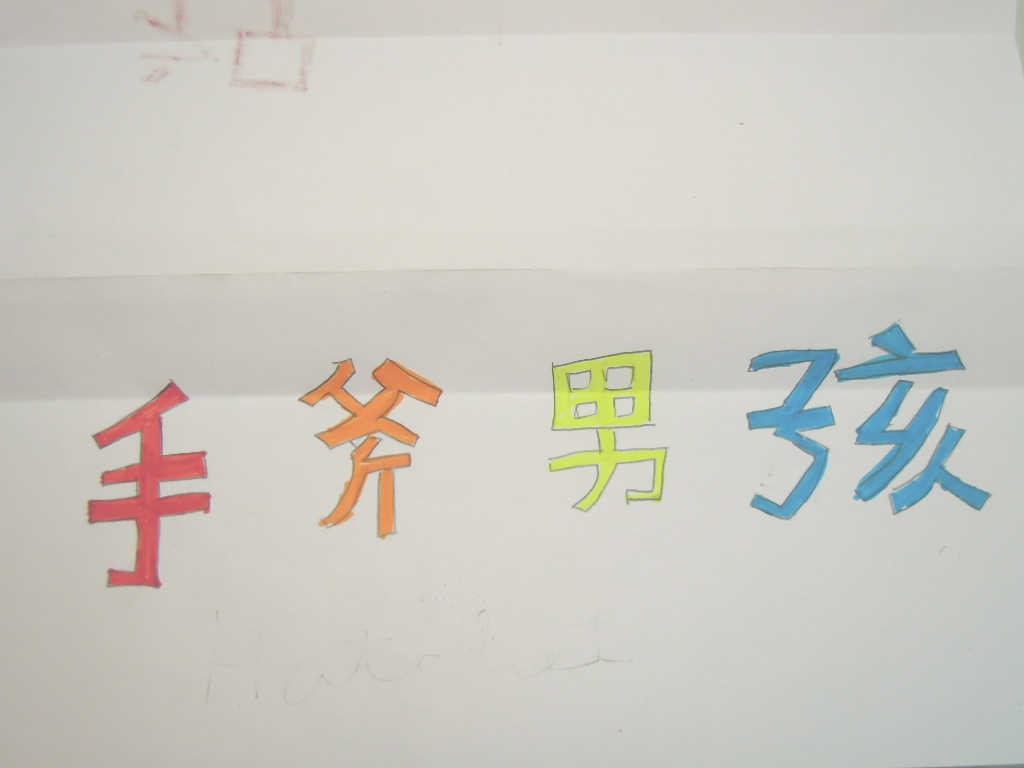 手斧男孩
Hatchet